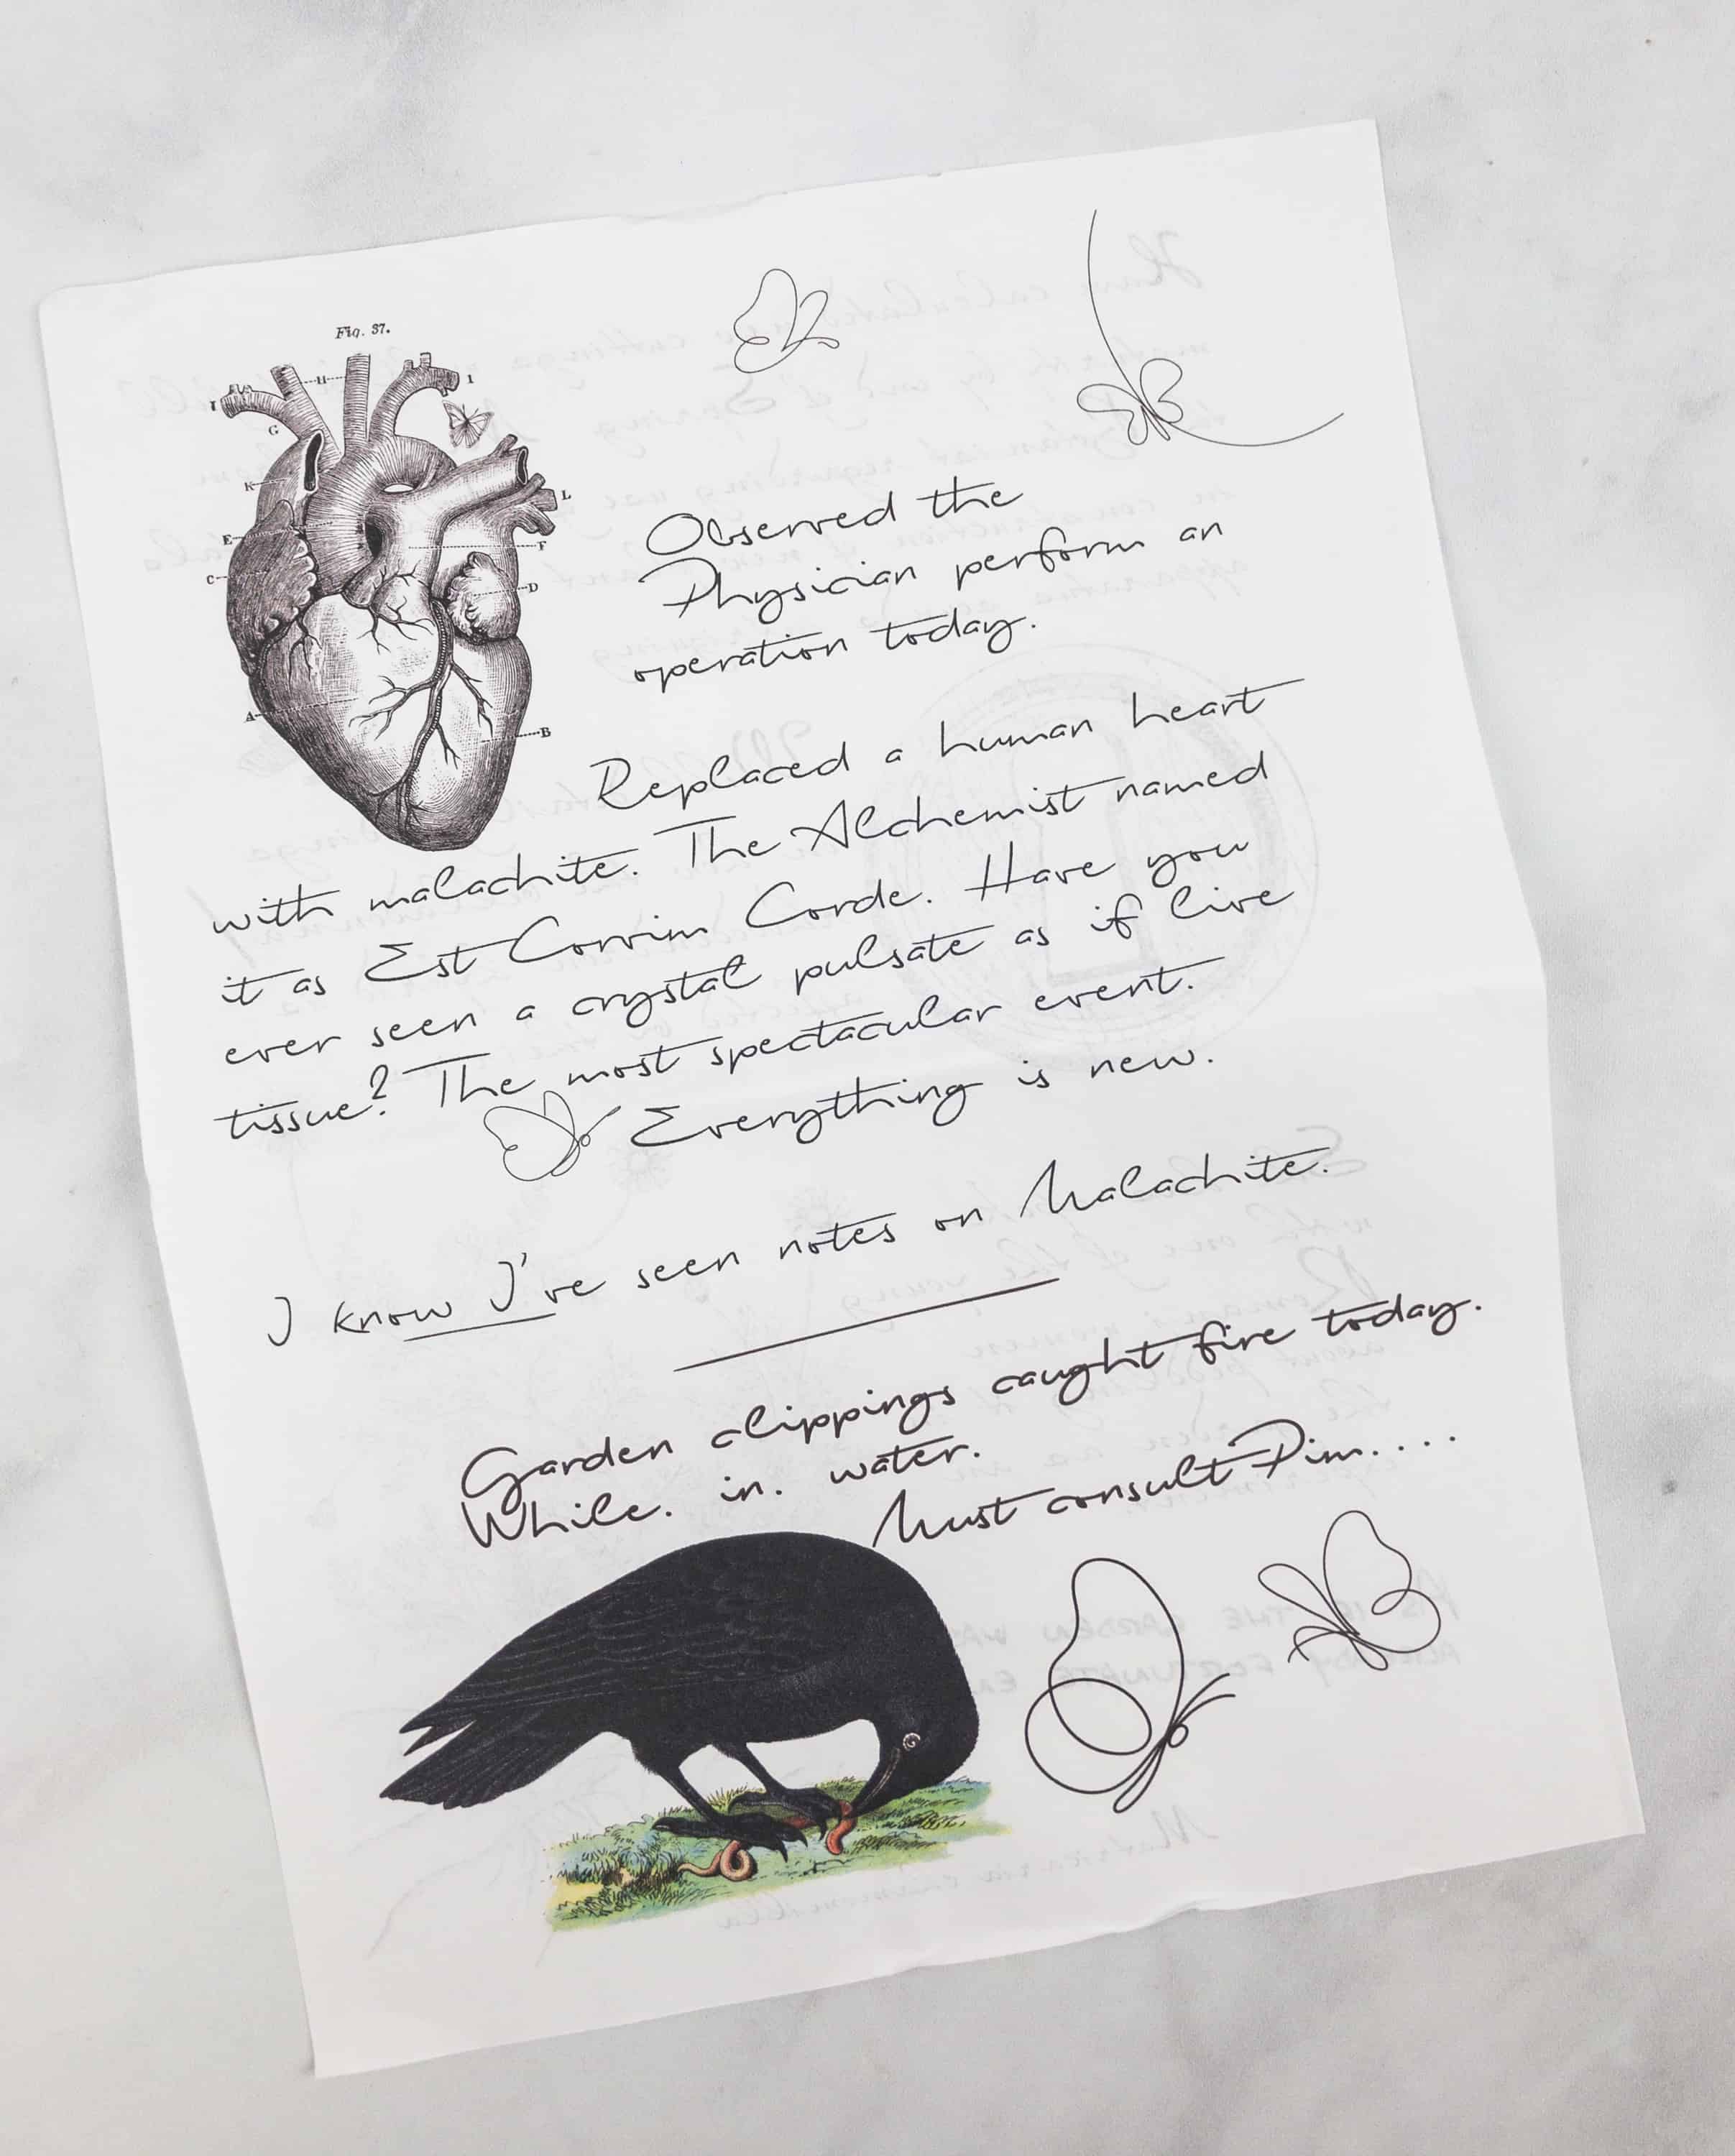 Fig. 37.
H
I
I
G
K
L
E
F
C
D
A
B
Observed the
Physician perform an
operation today.
Replaced a human heart
with malachite. The Alchemist named
it as Est Corvim Corde. Have you
ever seen a crystal pulsate as if live
tissue? The most spectacular event.
Everything is new.
I know I've seen notes on Malachite.
Garden clippings caught fire today.
While. in. water.
Must consult Pim....